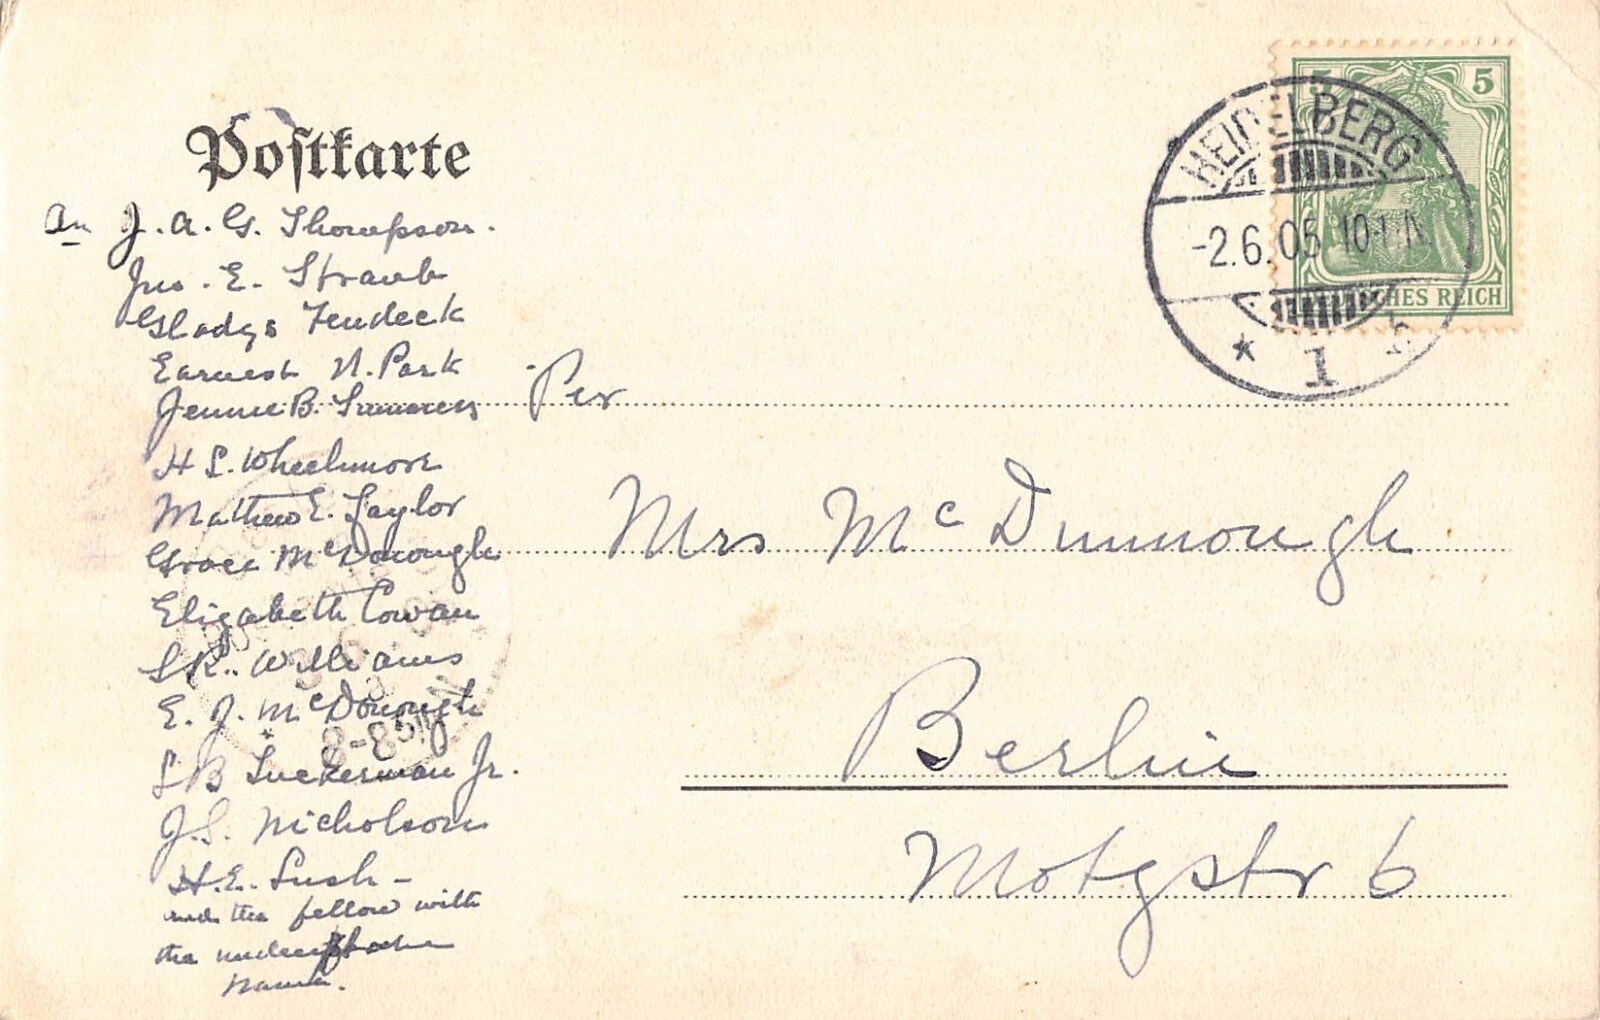 Postkarte
An J. A. G. Thompson.
Jno. E. Straub
Gladys Fendeck
Earnest N. Park
Jennie B.
H L. Wheelmore
Mathew E. Taylor
Grace McDonough
Elizabeth Cowan
S R. Williams
E. J. McDonough
L B Tuckerman Jr.
J. S. Nicholson
H. E. Lush -
and the fellow with
the
name.
Per
Mrs McDunnough
Berlin
Motzstr 6
5 5
DEUTSCHES REICH
HEIDELBERG
-2.6.05 10-11
* 1
8-8